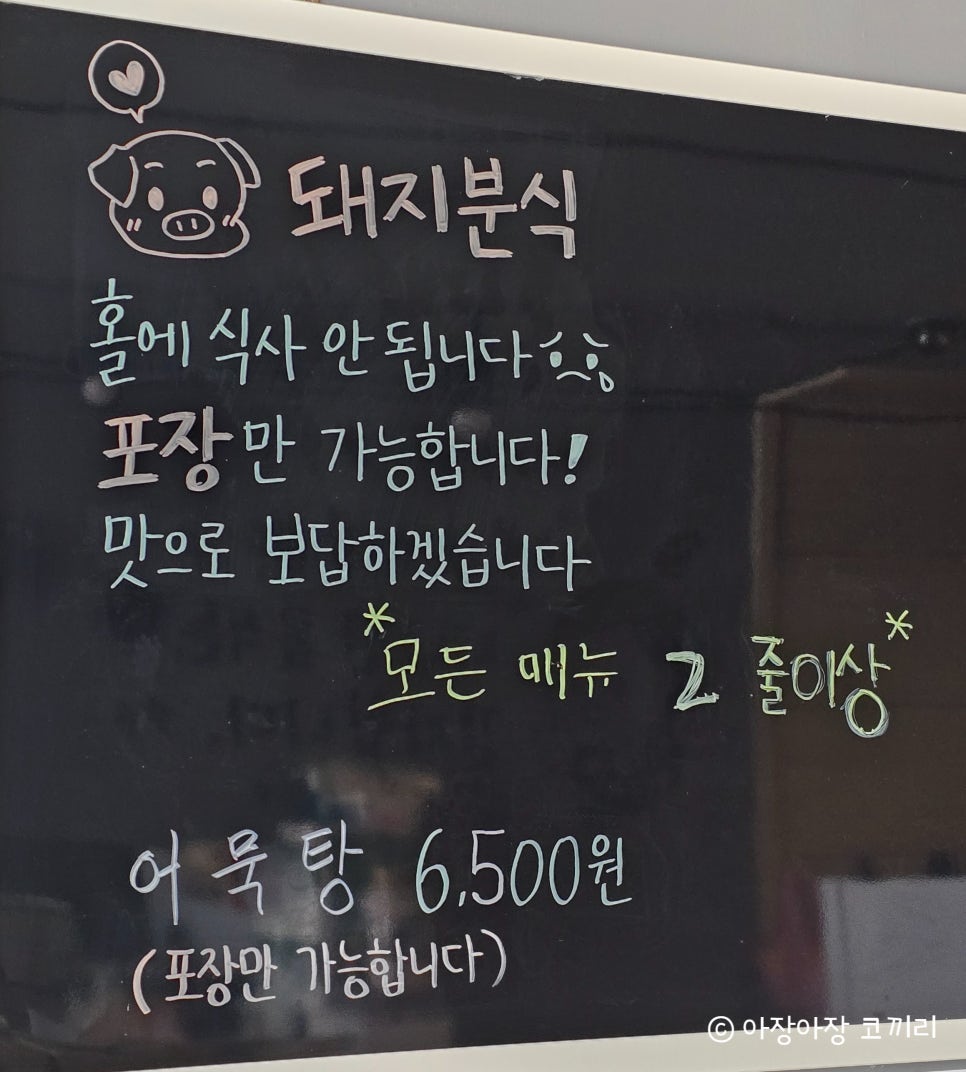 돼지분식
홀에 식사 안 됩니다
포장만 가능합니다!
맛으로 보답하겠습니다
*모든 메뉴 2 줄이상*
어묵탕 6,500원
(포장만 가능합니다)
© 아장아장 코끼리